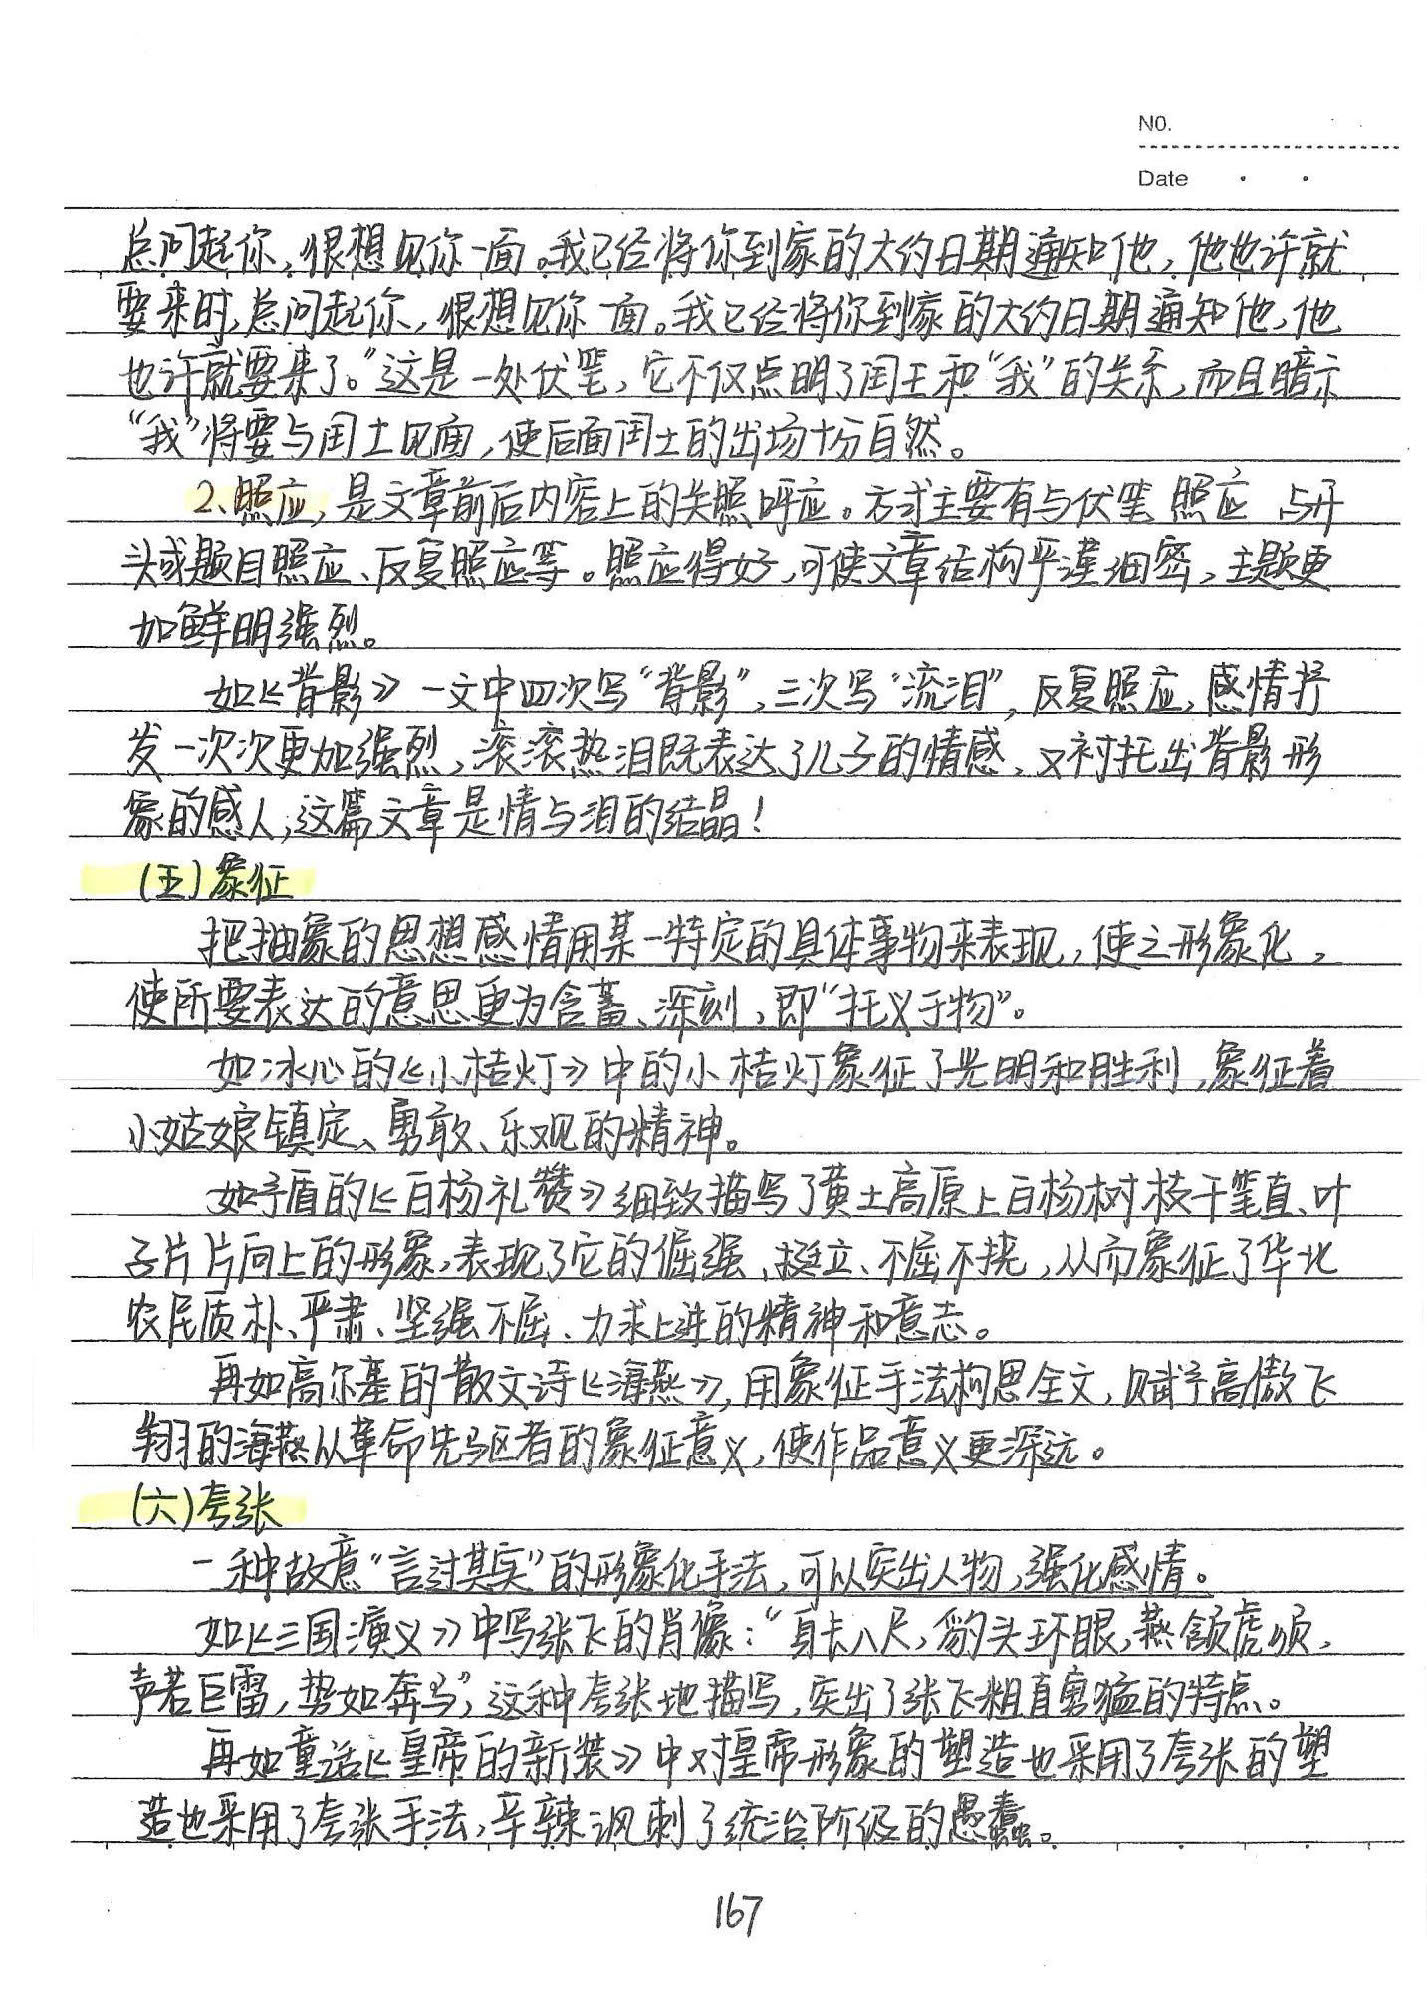 NO.
Date
总问起你,很想见你一面。我已经将你到家的大约日期通知他,他也许就
要来时,总问起你,很想见你一面。我已经将你到家的大约日期通知他,他
也许就要来了。”这是一处伏笔,它不仅点明了闰土和“我”的关系,而且暗示
“我”将要与闰土见面,使后面闰土的出场十分自然。
2、照应,是文章前后内容上的关照呼应。方式主要有与伏笔照应 与开
头或题目照应、反复照应等。照应得好,可使文章结构严谨细密,主题更
加鲜明强烈。
如《背影》一文中四次写“背影”,三次写“流泪”,反复照应,感情抒
发一次次更加强烈,滚滚热泪既表达了儿子的情感、又衬托出背影形
象的感人,这篇文章是情与泪的结晶!
(五)象征
把抽象的思想感情用某一特定的具体事物来表现,使之形象化,
使所要表达的意思更为含蓄、深刻,即“托义于物”。
如冰心的《小桔灯》中的小桔灯象征了光明和胜利,象征着
小姑娘镇定、勇敢、乐观的精神。
如矛盾的《白杨礼赞》细致描写了黄土高原上白杨树枝干笔直、叶
子片片向上的形象,表现了它的倔强、挺立、不屈不挠,从而象征了华北
农民质朴、严肃、坚强不屈、力求上进的精神和意志。
再如高尔基的散文诗《海燕》,用象征手法构思全文,赋予高傲飞
翔的海燕以革命先驱者的象征意义,使作品意义更深远。
(六)夸张
一种故意“言过其实”的形象化手法,可以突出人物,强化感情。
如《三国演义》中写张飞的肖像:“身长八尺,豹头环眼,燕颔虎须,
声若巨雷,势如奔马”,这种夸张地描写,突出了张飞粗直勇猛的特点。
再如童话《皇帝的新装》中对皇帝形象的塑造也采用了夸张的塑
造也采用了夸张手法,辛辣讽刺了统治阶级的愚蠢。
167